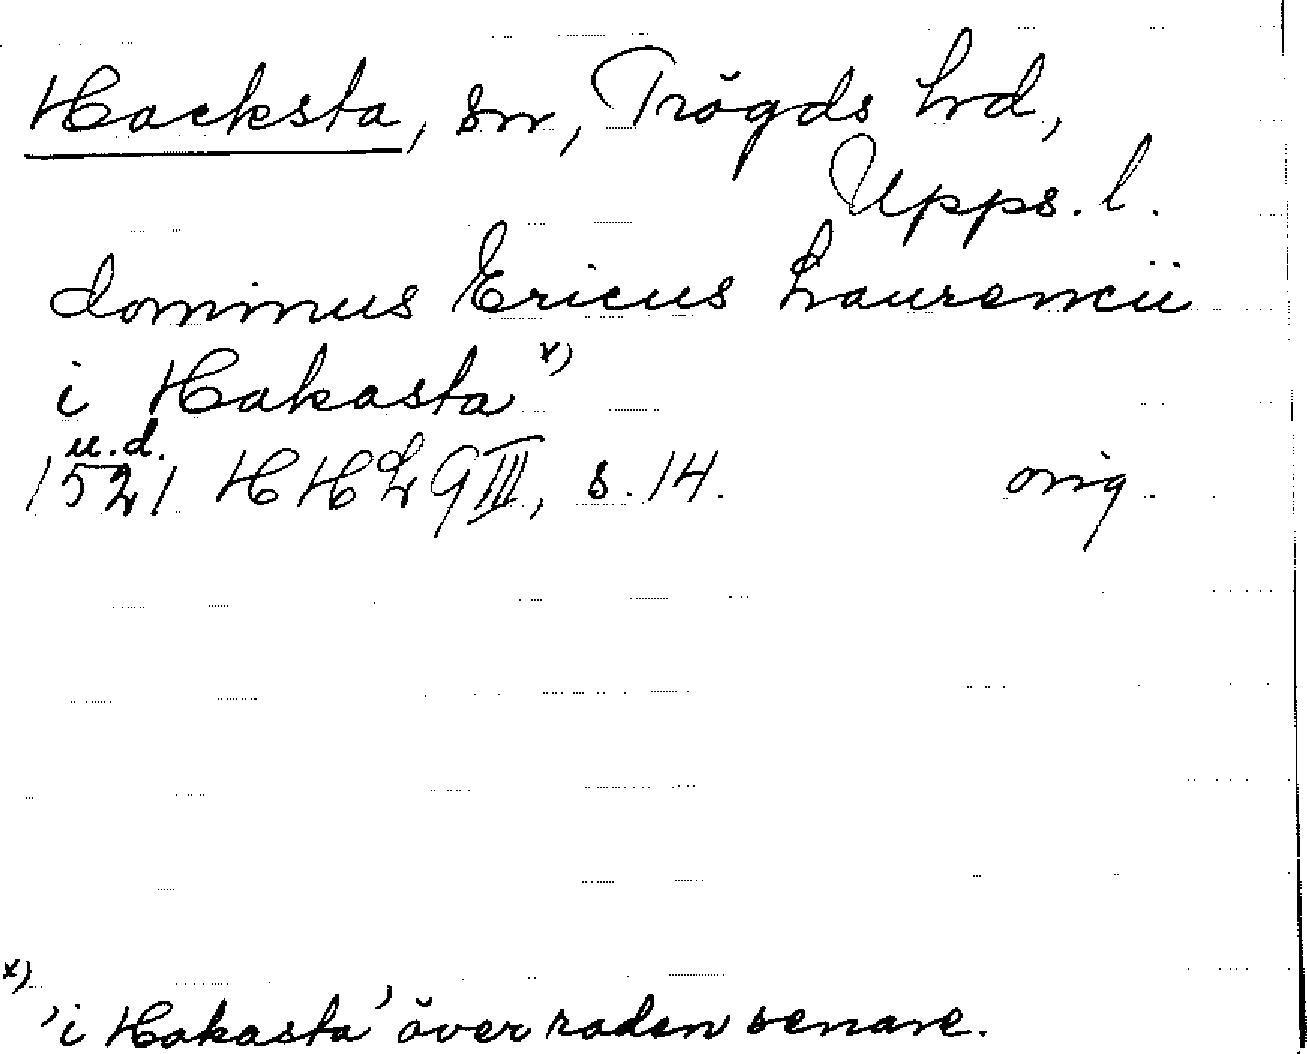 Hacksta, sn, Trögds hd,
Upps. l.
dominus Ericus Laurencii
i Hakasta x)
u.d.
1521 HHL 9 III, s. 14. orig.
x)
'i Hakasta' över raden senare.